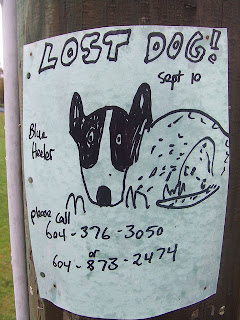 LOST DOG!
Sept 10
Blue
Heeler
please call
604-376-3050
or
604-873-2474